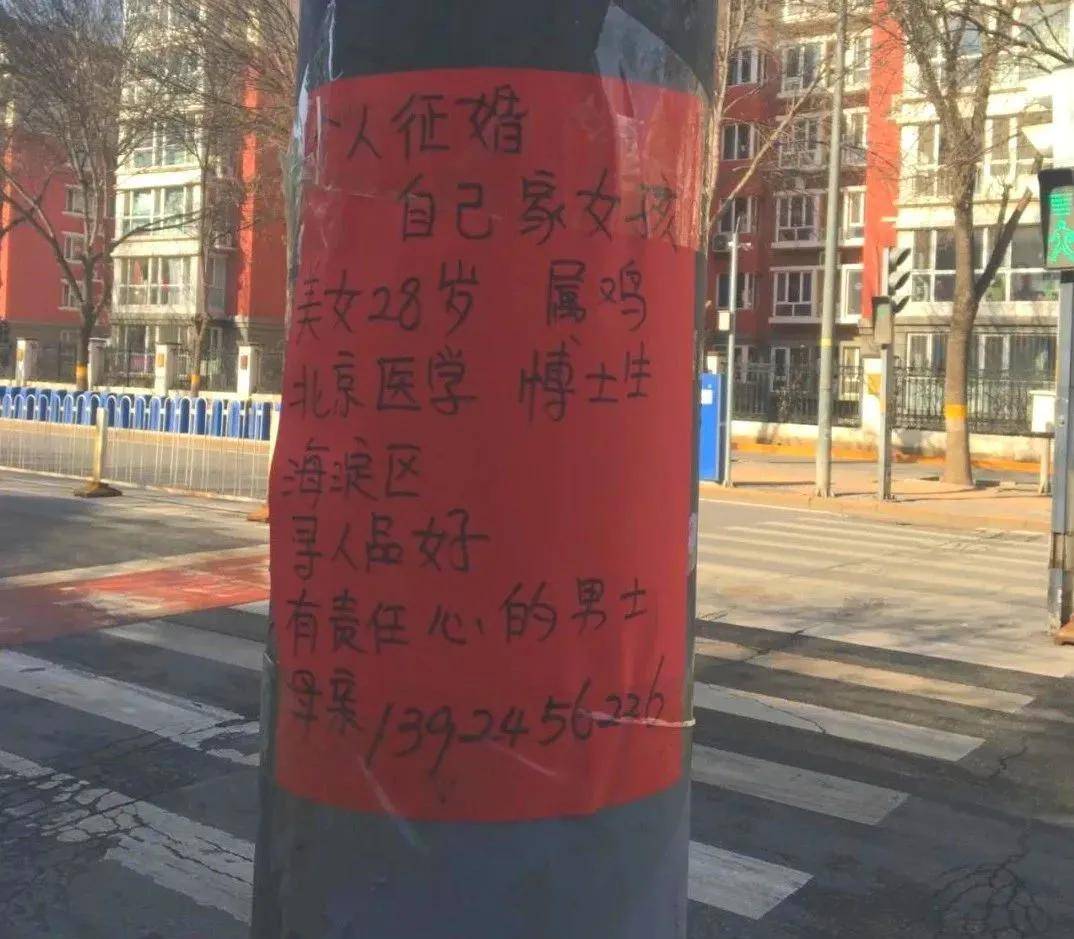 个人征婚
自己家女孩
美女28岁 属鸡
北京医学 博士生
海淀区
寻人品好
有责任心的男士
母亲13924562236